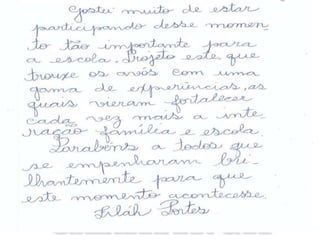 Gostei muito de estar
participando desse momen-
to tão importante para
a escola. Projeto este que
trouxe os avós com uma
gama de experiências, as
quais vieram fortalecer
cada vez mais a inte-
ração família e escola.
Parabéns a todos que
se empenharam bri-
lhantemente para que
este momento acontecesse
Liláh Portes